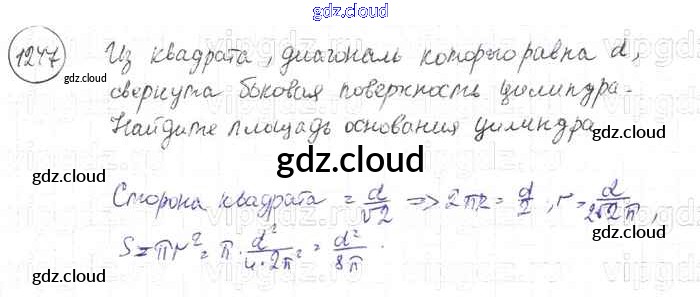 gdz.cloud
1247
Из квадрата, диагональ которого равна d,
gdz.cloud
свернута боковая поверхность цилиндра.
Найдите площадь основания цилиндра
gdz.cloud
Сторона квадрата = d/√2 => 2πr = d/2, r = d/2√2π,
S = πr² = π · d²/4·2π² = d²/8π.
gdz.cloud
gdz.cloud